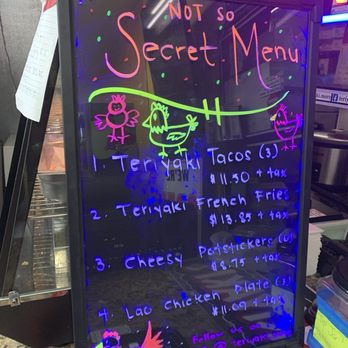 NOT SO
Secret Menu
1. Teriyaki Tacos (3)
$11.50 + tax
2. Teriyaki French Fries
$13.25 + tax
3. Cheesy Potstickers (6)
$8.75 + tax
4. Lao Chicken Plate (3)
$11.09 + tax
Follow us on